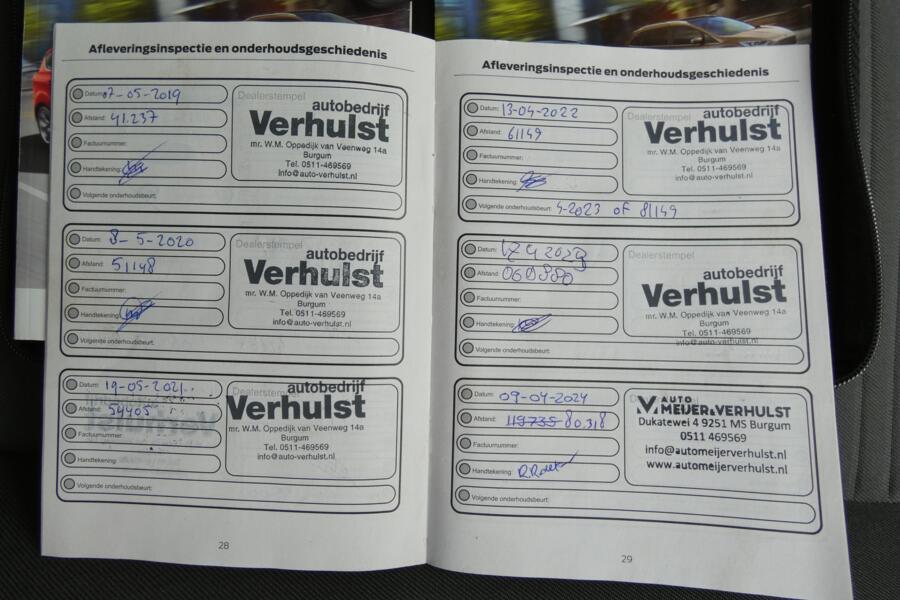 Afleveringsinspectie en onderhoudsgeschiedenis
Datum: 07-05-2019
Afstand: 41.237
Factuurnummer:
Handtekening:
Volgende onderhoudsbeurt:
Dealerstempel
autobedrijf
Verhulst
mr. W.M. Oppedijk van Veenweg 14a
Burgum
Tel. 0511-469569
info@auto-verhulst.nl
Datum: 8-5-2020
Afstand: 51148
Factuurnummer:
Handtekening:
Volgende onderhoudsbeurt:
Dealerstempel
autobedrijf
Verhulst
mr. W.M. Oppedijk van Veenweg 14a
Burgum
Tel. 0511-469569
info@auto-verhulst.nl
Datum: 19-05-2021
Afstand: 54405
Factuurnummer:
Handtekening:
Volgende onderhoudsbeurt:
Dealerstempel
autobedrijf
Verhulst
mr. W.M. Oppedijk van Veenweg 14a
Burgum
Tel. 0511-469569
info@auto-verhulst.nl
28
Afleveringsinspectie en onderhoudsgeschiedenis
Datum: 13-04-2022
Afstand: 61149
Factuurnummer:
Handtekening:
Volgende onderhoudsbeurt: 4-2023 of 81149
Dealerstempel
autobedrijf
Verhulst
mr. W.M. Oppedijk van Veenweg 14a
Burgum
Tel. 0511-469569
info@auto-verhulst.nl
Datum:
Afstand:
Factuurnummer:
Handtekening:
Volgende onderhoudsbeurt:
Dealerstempel
autobedrijf
Verhulst
mr. W.M. Oppedijk van Veenweg 14a
Burgum
Tel. 0511-469569
info@auto-verhulst.nl
Datum: 09-04-2024
Afstand: 119735 80.318
Factuurnummer:
Handtekening:
Volgende onderhoudsbeurt:
AUTO
MEIJER&VERHULST
Dukatewei 4 9251 MS Burgum
0511 469569
info@automeijerverhulst.nl
www.automeijerverhulst.nl
29